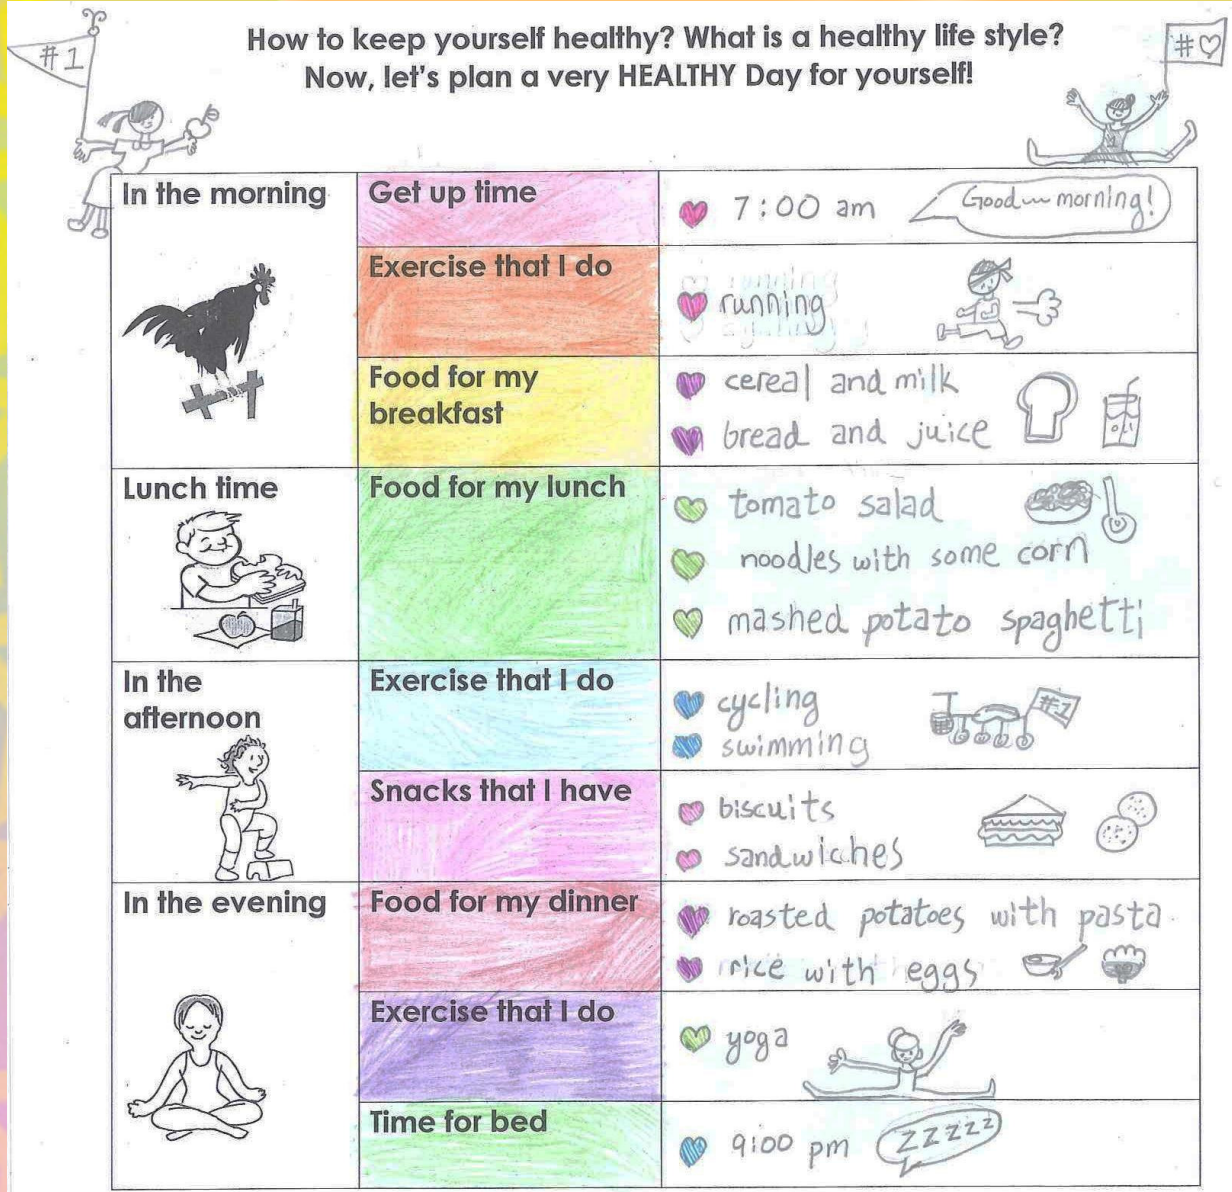 #1
How to keep yourself healthy? What is a healthy life style?
Now, let's plan a very HEALTHY Day for yourself!
#♡
In the morning
Get up time
7:00 am
Good morning!
Exercise that I do
running
Food for my
breakfast
cereal and milk
bread and juice
Lunch time
Food for my lunch
tomato salad
noodles with some corn
mashed potato spaghetti
In the
afternoon
Exercise that I do
cycling
swimming
#1
Snacks that I have
biscuits
sandwiches
In the evening
Food for my dinner
roasted potatoes with pasta
rice with eggs
Exercise that I do
yoga
Time for bed
9:00 pm
zzzzz